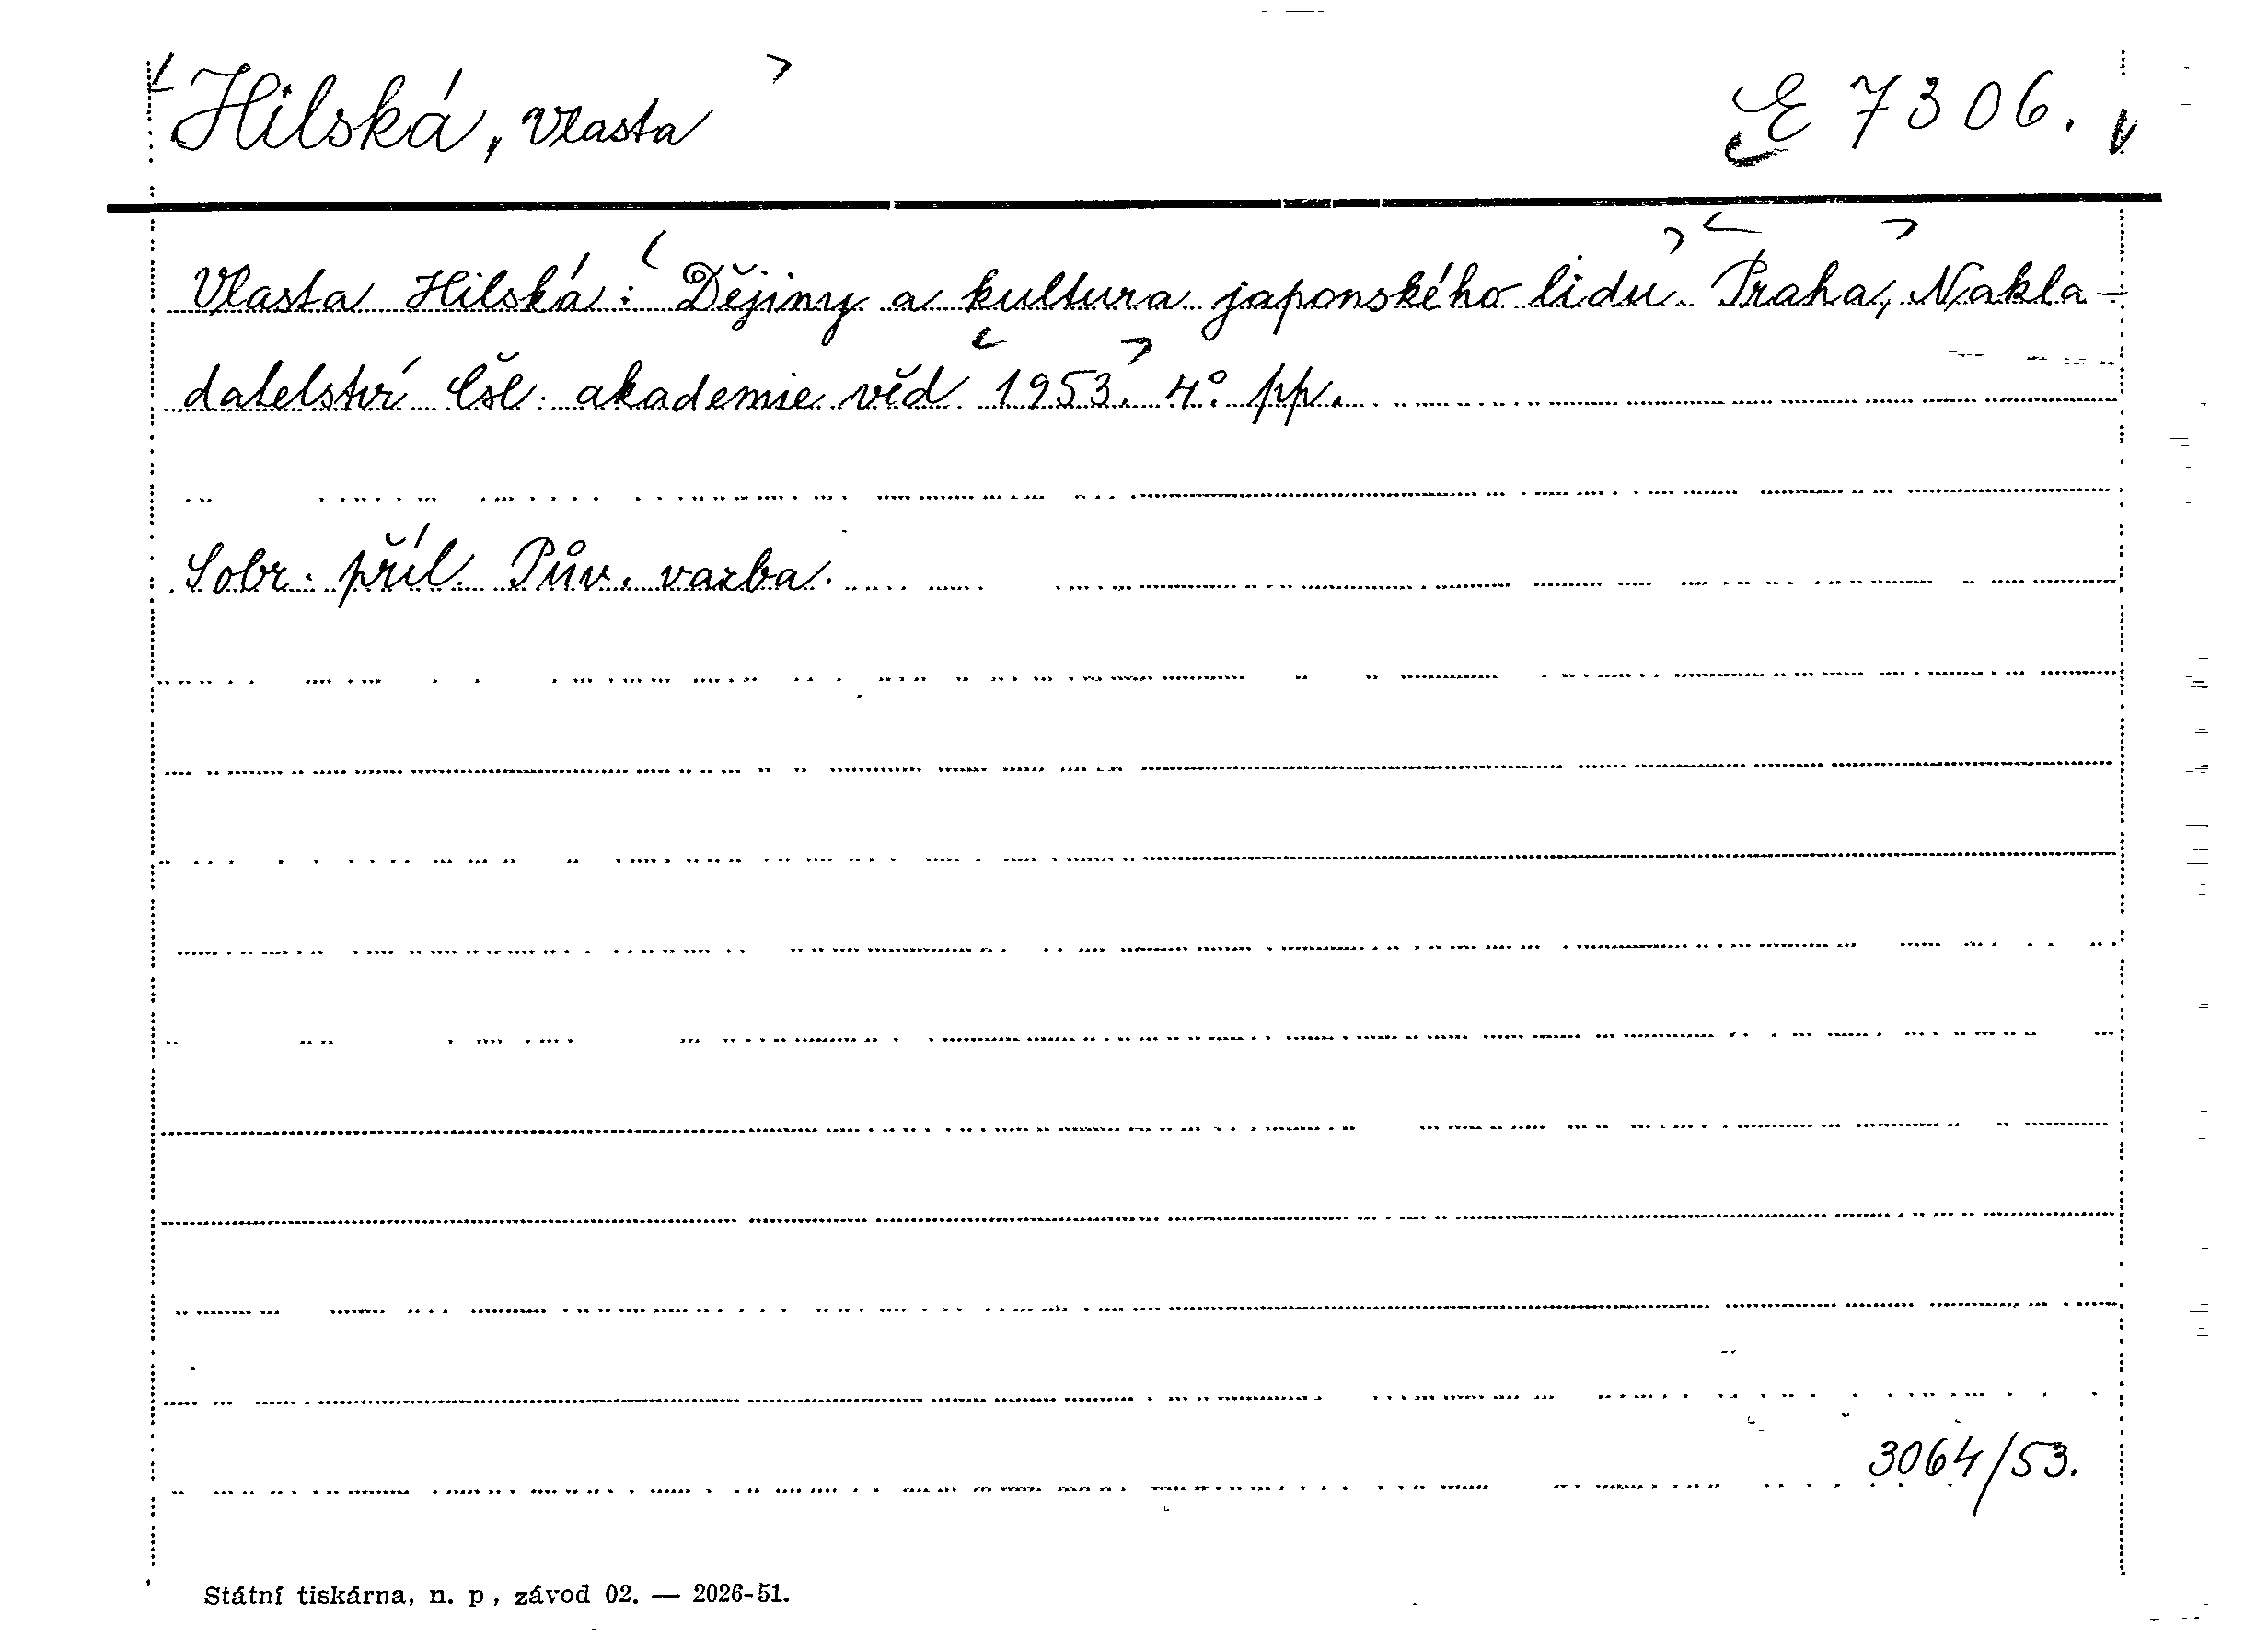 Hilská, Vlasta E 7306.
Vlasta Hilská: Dějiny a kultura japonského lidu. Praha, Nakla-
datelství Čsl. akademie věd 1953. 4° pp.
S obr. příl. Pův. vazba.
3064/53.
Státní tiskárna, n. p, závod 02. — 2026-51.